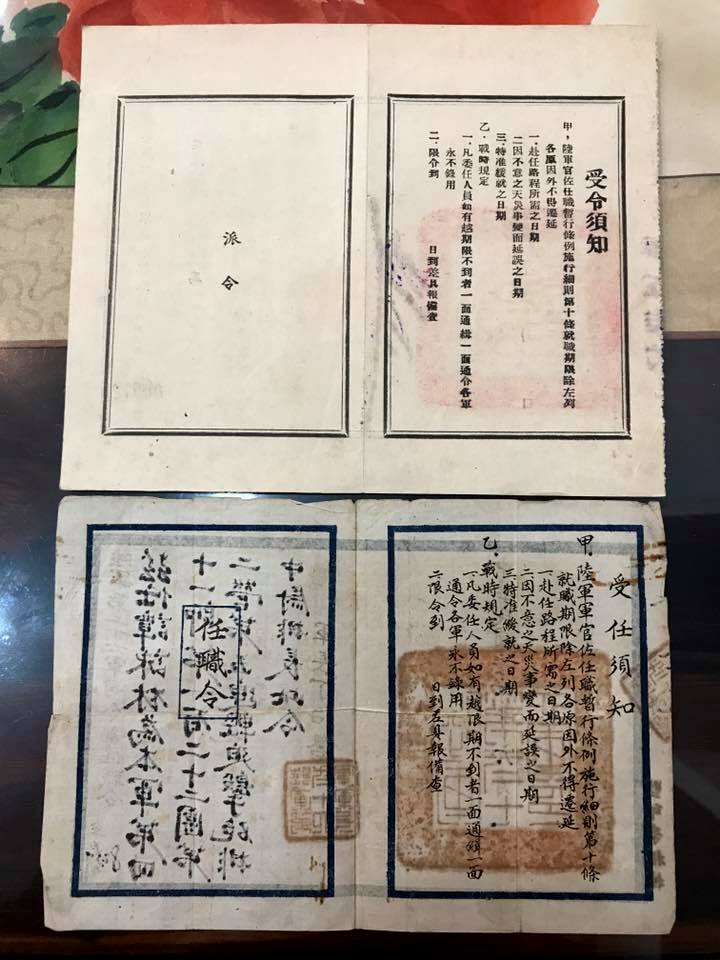 受令須知
甲，陸軍官佐任職暫行條例施行細則第十條就職期限除左列
各原因外不得遷延
一.赴任路程所需之日期
二因不意之天災事變而延誤之日期
三.特准緩就之日期
乙．戰時規定
一.凡委任人員如有越期限不到者一面通緝一面通令各軍
永不錄用
二.限令到 日到差具報備查
派令
受任須知
甲.陸軍軍官佐任職暫行條例施行細則第十條
就職期限除左列各原因外不得延
一赴任路程所需之日期
二因不意之天災事變而延誤之日期
三特准緩就之日期
乙.戰時規定
一凡委任人員如有越限期不到者一面通緝一面
通令各軍永不錄用
二限令到 日到差具報備查
任職令
為本軍第四
十一師第一百二十三團第
二營 追擊砲排
中尉排長此令